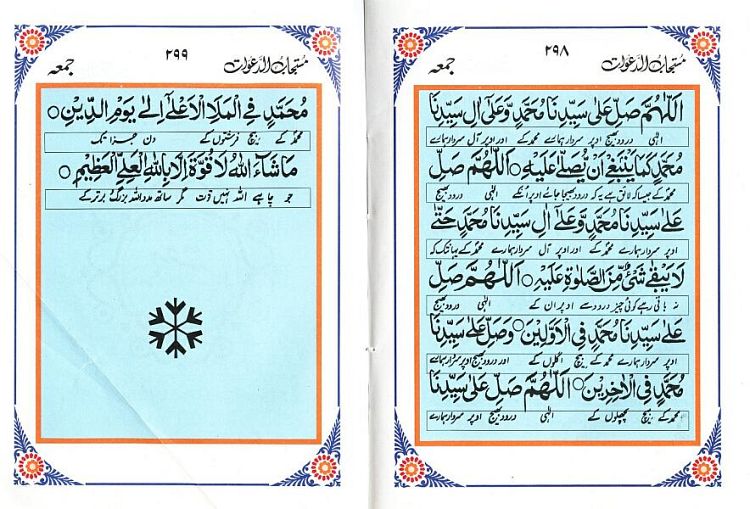 مستجاب الدعوات ۲۹۸ جمعہ
اَللّٰهُمَّ صَلِّ عَلٰى سَيِّدِنَا مُحَمَّدٍ وَّعَلٰٓى اٰلِ سَيِّدِنَا
الٰہی درود بھیج اوپر سردار ہمارے محمدؐ کے اور اوپر آل سردار ہمارے
مُحَمَّدٍ كَمَا يَنْۢبَغِىْ اَنْ يُّصَلّٰى عَلَيْهِ ○ اَللّٰهُمَّ صَلِّ
محمدؐ کے جیسا کہ لائق ہے یہ کہ درود بھیجا جائے اوپر انکے الٰہی درود بھیج
عَلٰى سَيِّدِنَا مُحَمَّدٍ وَّعَلٰٓى اٰلِ سَيِّدِنَا مُحَمَّدٍ حَتّٰى
اوپر سردار ہمارے محمدؐ کے اور اوپر آل سردار ہمارے محمدؐ کے یہانتک کہ
لَا يَبْقٰى شَىْءٌ مِّنَ الصَّلٰوةِ عَلَيْهِ ○ اَللّٰهُمَّ صَلِّ
نہ باقی رہے کوئی چیز درود سے اوپر ان کے الٰہی درود بھیج
عَلٰى سَيِّدِنَا مُحَمَّدٍ فِى الْاَوَّلِيْنَ ○ وَصَلِّ عَلٰى سَيِّدِنَا
اوپر سردار ہمارے محمدؐ کے بیچ اگلوں کے اور درود بھیج اوپر سردار ہمارے
مُحَمَّدٍ فِى الْاٰخِرِيْنَ ○ اَللّٰهُمَّ صَلِّ عَلٰى سَيِّدِنَا
محمدؐ کے بیچ پچھلوں کے الٰہی درود بھیج اوپر سردار ہمارے
مستجاب الدعوات ۲۹۹ جمعہ
مُحَمَّدٍ فِى الْمَلَاِ الْاَعْلٰٓى اِلٰى يَوْمِ الدِّيْنِ ○
محمدؐ کے بیچ فرشتوں کے دن جزا تک
مَا شَآءَ اللّٰهُ لَا قُوَّةَ اِلَّا بِاللّٰهِ الْعَلِىِّ الْعَظِيْمِ ○
جو چاہے اللہ نہیں قوت مگر ساتھ مدد اللہ بزرگ برتر کے